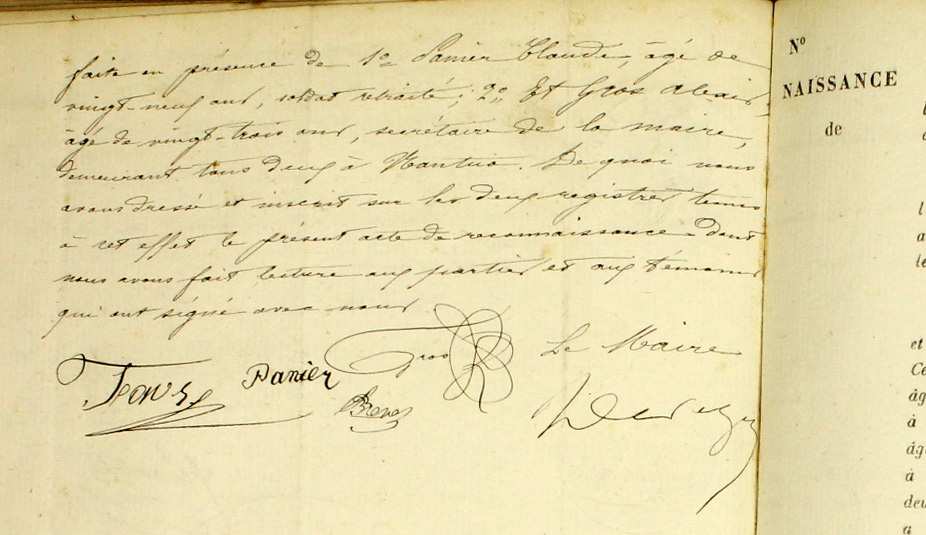 faite en présence de 1° Panier Claude, âgé de
vingt-neuf ans, soldat retraité; 2° Et Gros
âgé de vingt-trois ans, secrétaire de la mairie,
demeurant tous deux à Nantua. De quoi nous
avons dressé et inscrit sur les deux registres tenus
à cet effet le présent acte de reconnaissance dont
nous avons fait lecture aux parties et aux témoins
qui ont signé avec nous
Le Maire
Panier
Gros
N°
NAISSANCE
de
l
a
le
et
Ce
âg
à
âg
à
deu
a